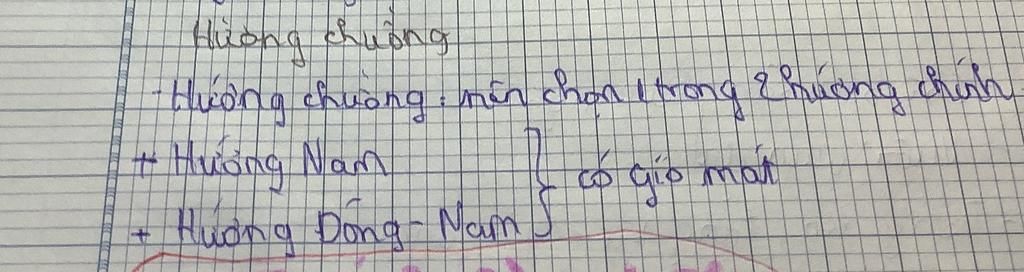 Hướng chuồng
- Hướng chuồng: nên chọn 1 trong 2 hướng chính
+ Hướng Nam } có gió mát
+ Hướng Đông - Nam